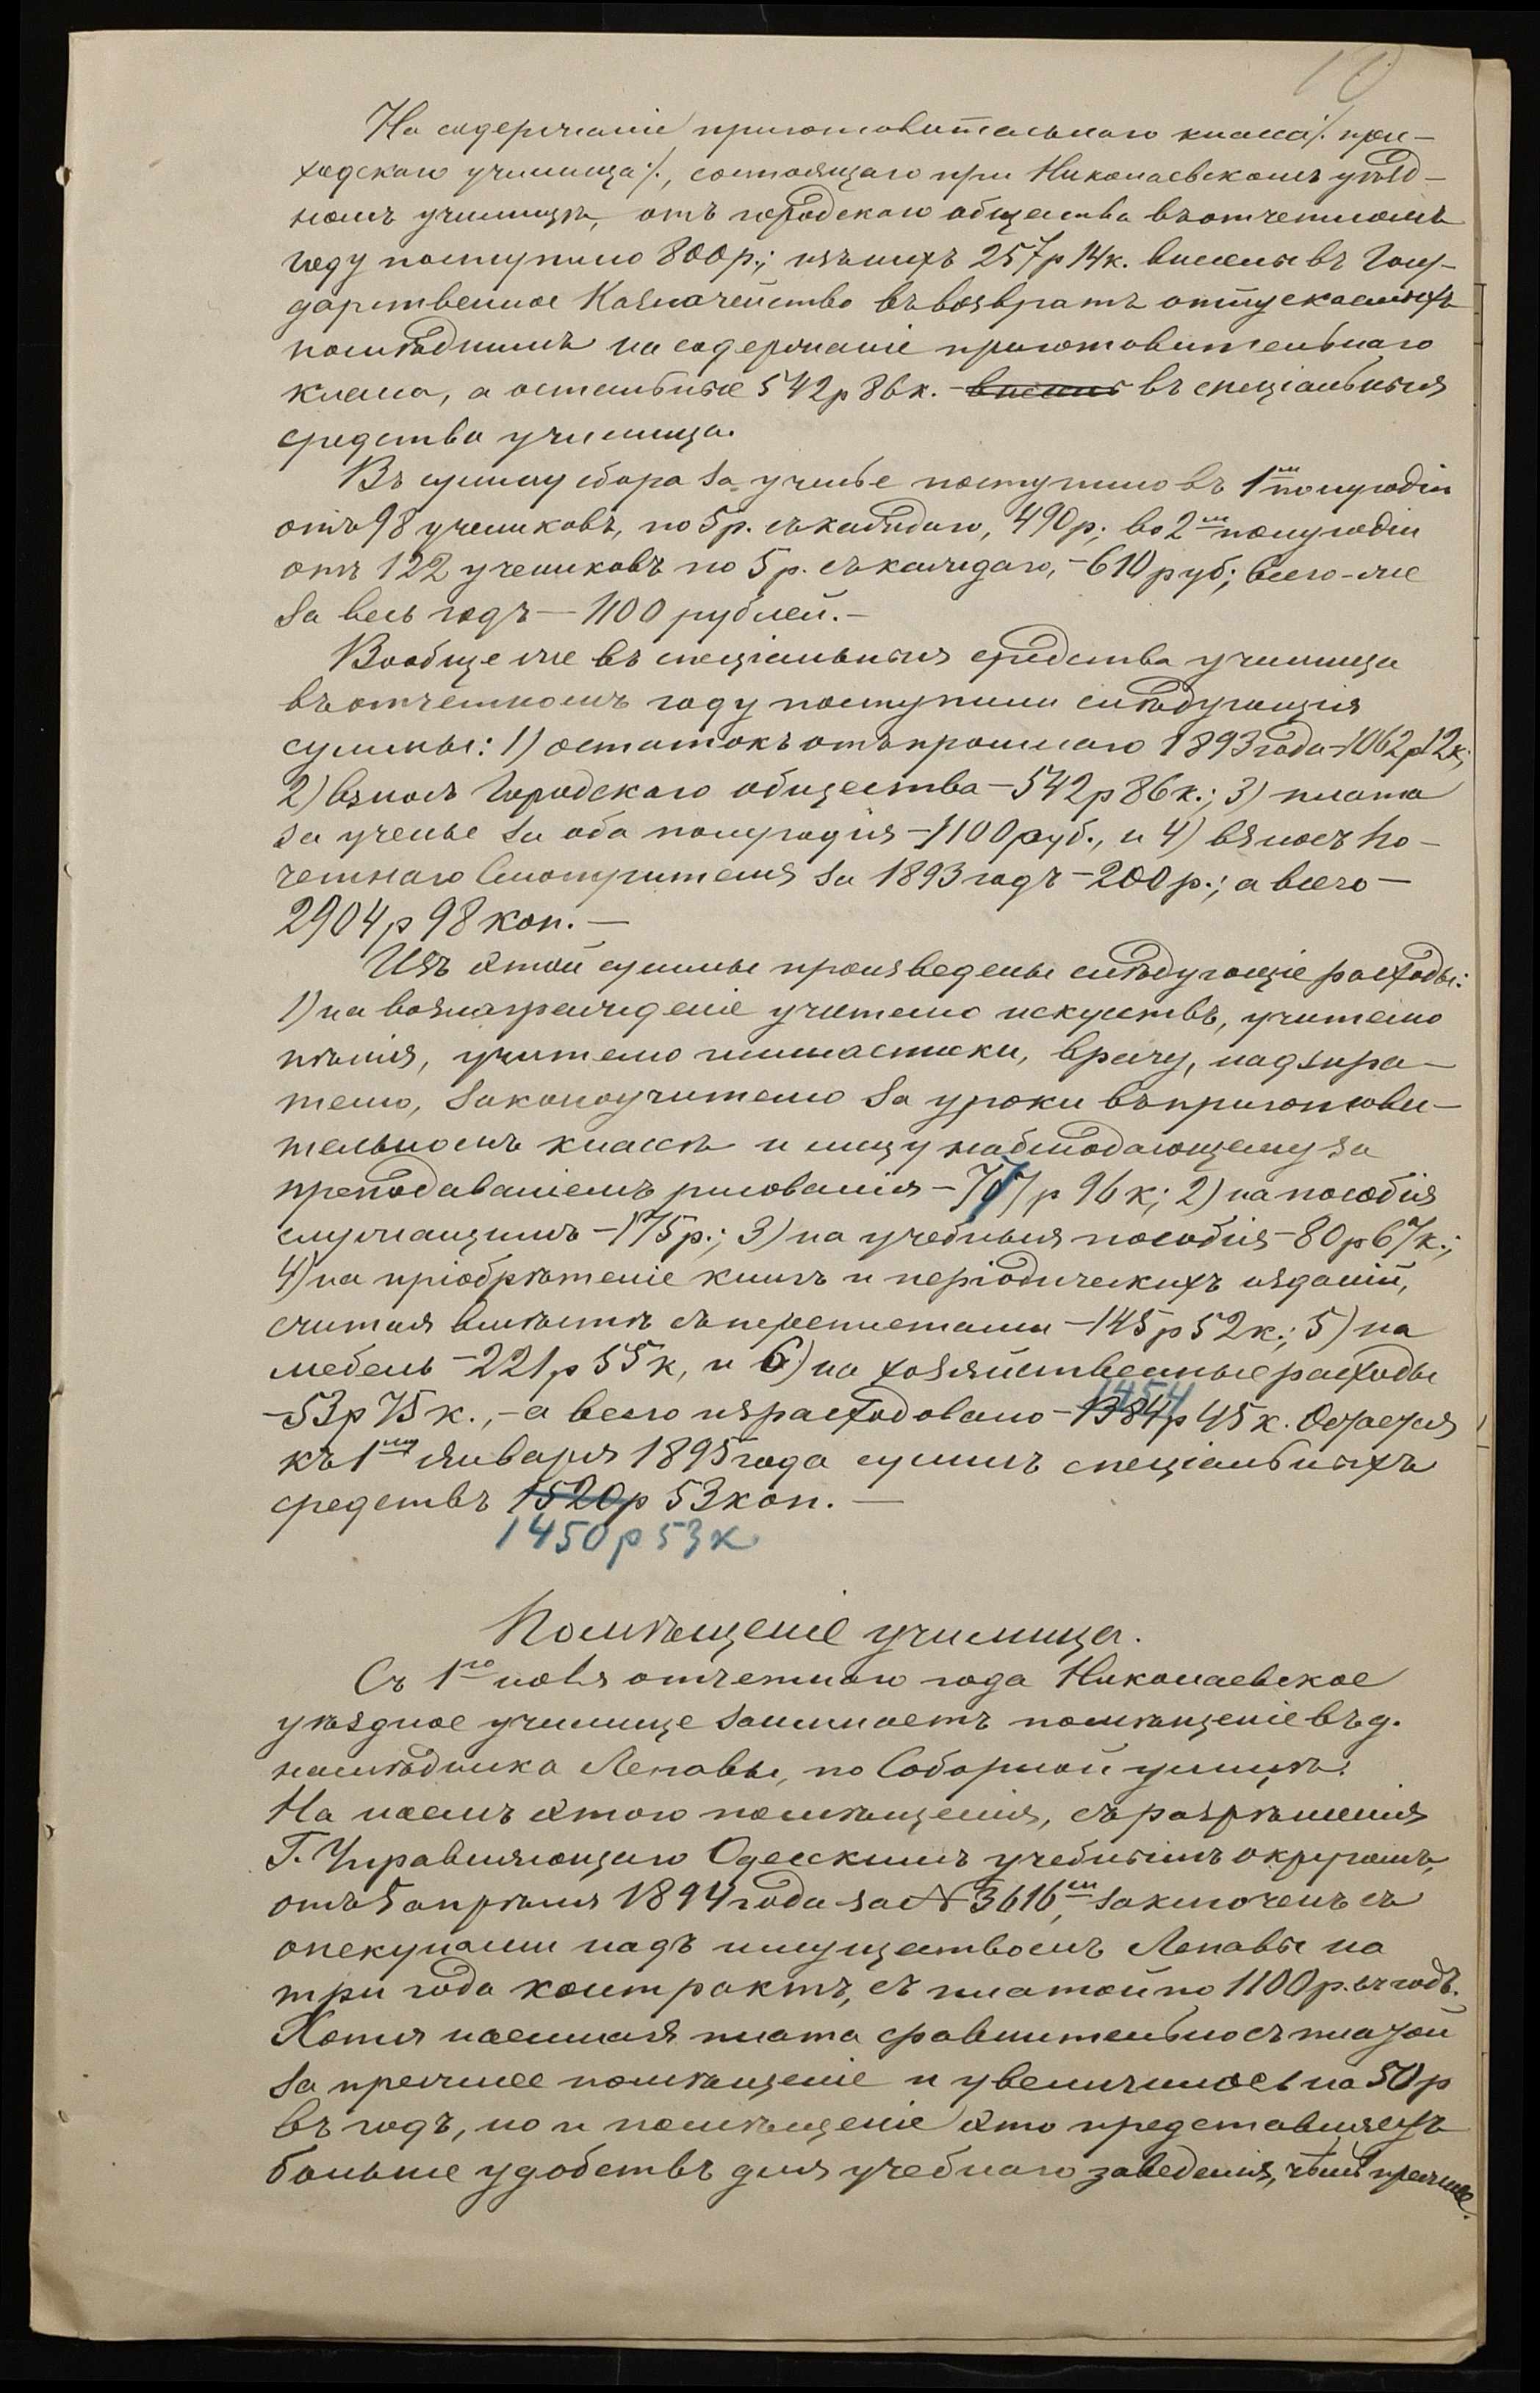 10
На содержаніе приготовительнаго класса /. при-
ходскаго училища ./, состоящаго при Николаевскомъ уѣзд-
номъ училищѣ, отъ городскаго общества въ отчетномъ
году поступило 800 р.; изъ нихъ 257 р 14 к. внесены въ Госу-
дарственное Казначейство въ возвратъ отпускаемыхъ
послѣднимъ на содержаніе приготовительнаго
класса, а остальные 542 р 86 к. – внесены въ спеціальныя
средства училища.
Въ сумму сбора за ученье поступило въ 1мъ полугодіи
отъ 98 учениковъ, по 5 р. съ каждаго, 490 р; во 2мъ полугодіи
отъ 122 учениковъ по 5 р. съ каждаго, – 610 руб; всего-же
за весь годъ – 1100 рублей. –
Вообще же въ спеціальныя средства училища
въ отчетномъ году поступили слѣдующія
суммы: 1) остатокъ отъ прошлаго 1893 года – 1062 р 12 к;
2) взносъ Городскаго общества – 542 р 86 к.; 3) плата
за ученье за оба полугодія – 1100 руб., и 4) взносъ По-
четнаго Смотрителя за 1893 годъ – 200 р.; а всего –
2904 р 98 коп. –
Изъ этой суммы произведены слѣдующіе расходы:
1) на вознагражденіе учителю искусствъ, учителю
пѣнія, учителю гимнастики, врачу, надзира-
телю, законоучителю за уроки въ приготови-
тельномъ классѣ и лицу наблюдающему за
преподаваніемъ рисованія – 777 р 96 к; 2) на пособія
служащимъ – 175 р.; 3) на учебныя пособія – 80 р 67 к.;
4) на пріобрѣтеніе книгъ и періодическихъ изданій,
считая вмѣстѣ съ переплетами – 145 р 52 к.; 5) на
мебель – 221 р 55 к, и 6) на хозяйственные расходы
– 53 р 75 к., – а всего израсходовано – 1384 р 45 к. Остается
1454
къ 1му января 1895 года суммъ спеціальныхъ
средствъ 1520 р 53 коп. –
1450 р 53 к
Помѣщеніе училища.
Съ 1го іюля отчетнаго года Николаевское
уѣздное училище занимаетъ помѣщеніе въ д.
наслѣдника Лепавы, по Соборной улицѣ.
На наемъ этого помѣщенія, съ разрѣшенія
Г. Управляющаго Одесскимъ учебнымъ округомъ,
отъ 5 апрѣля 1894 года за № 3616мъ, заключенъ съ
опекунами надъ имуществомъ Лепавы на
три года контрактъ, съ платой по 1100 р. въ годъ.
Хотя наемная плата сравнительно съ платой
за прежнее помѣщеніе и увеличилось на 50 р
въ годъ, но и помѣщеніе это представляетъ
больше удобствъ для учебнаго заведенія, чѣмъ прежнее.